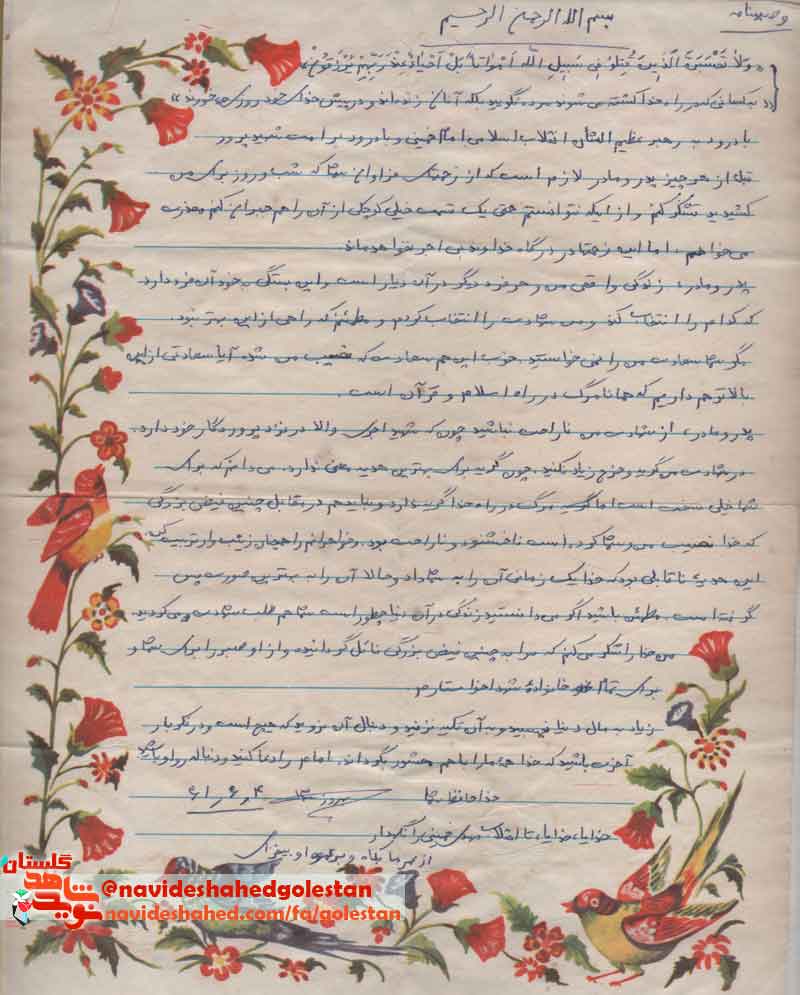 وصیتنامه
بسم الله الرحمن الرحیم
«وَلا تَحْسَبَنَّ الَّذینَ قُتِلوُا فی سَبیلِ اللّه اَمْواتاً بَلْ اَحْیاءٌ عِنْدَ رَبِّهِمْ یُرْزَقُونْ»
«به کسانی که در راه خدا کشته می‌شوند مرده نگویید بلکه آنان زنده‌اند و در پیش خدای خود روزی می‌خورند»
با درود به رهبر عظیم الشأن انقلاب اسلامی امام خمینی و با درود بر امت شهید پرور
قبل از هر چیز پدر و مادر لازم است که از زحمتهای فراوان شما که شب و روز برای من
کشیدید تشکر کنم و از اینکه نتوانستم حتی یک قسمت خیلی کوچکی از آن را هم جبران کنم معذرت
می‌خواهم، اما این زحمتها در درگاه خداوند بی اجر نخواهد ماند
پدر و مادر، زندگی واقعی من و هر فرد دیگر در آن دیار است و این بستگی بخود آن فرد دارد
که کدام را انتخاب کند و من شهادت را انتخاب کردم و مطمئنم که راهی از این بهتر نبود.
مگر شما سعادت من را نمی خواستید، خوب این هم سعادت که نصیب من شد، آیا سعادتی از این
بالاتر هم داریم که همانا مرگ در راه اسلام و قرآن است.
پدر و مادر، از شهادت من ناراحت نباشید چون که شهید اجری والا در نزد پروردگار خود دارد.
در شهادت من گریه و خرج زیاد نکنید، چون گریه برای بهترین هدیه معنی ندارد، می دانم که برای
شما خیلی سخت است اما مرگ در راه خدا گریه ندارد و نباید هم در مقابل چنین فیض بزرگی
که خدا نصیب من و شما کرده است ناخشنود و ناراحت بود. و خواهرانم را همچنان زینب وار تربیت کنید
این هدیه ناقابلی بود که خدا یک زمانی آن را به شما داد و حالا آن را به بهترین صورت پس
گرفته است. مطمئن باشید اگر می دانستید زندگی در آن دنیا چطور است شما هم طلب شهادت می کردید.
من خدا را شکر می کنم که مرا به چنین فیض بزرگی نائل گردانید و از او صبر را برای شما و
برای تمام خانواده شهدا خواستارم.
زیاد به مال دنیا نچسبید و به آن تکیه نزنید و دنبال آن نروید که هیچ است و در فکر بار
آخرت باشید که خدا همه ما را با هم محشور بگرداند، امام را دعا کنید و دنباله رو او باشید
خدا حافظ شما ۶۱٫۶٫۴
خدایا، خدایا، تا انقلاب مهدی خمینی را نگهدار
از عمر ما بکاه و بر عمر او بیفزای
گلستان
نوید شاهد
@navideshahedgolestan
navideshahed.com/fa/golestan